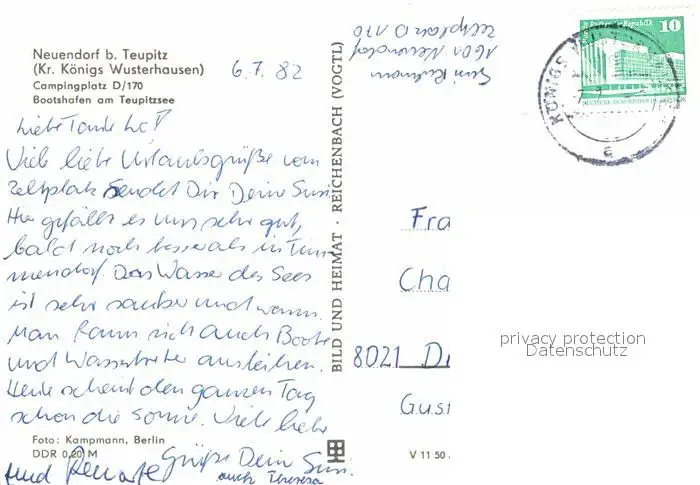 Neuendorf b. Teupitz
(Kr. Königs Wusterhausen)
Campingplatz D/170
Bootshafen am Teupitzsee
6.7.82
Liebe Tante
Viele liebe Urlaubsgrüße vom
Zeltplatz sendet Dir Deine Susi.
Hier gefällt es uns sehr gut,
bald noch besser als in Tim-
mendorf. Das Wasser des Sees
ist sehr sauber und warm.
Man kann sich auch Boote
und Wasserbretter ausleihen.
Heute scheint den ganzen Tag
schon die Sonne. Viele liebe
Grüße Deine Susi
und Renate
auch Theresa
Foto: Kampmann, Berlin
DDR 0,20 M
BILD UND HEIMAT · REICHENBACH (VOGTL)
V 11 50
1601 Neuendorf
Zeltplatz D 170
10
KÖNIGS
a
Fra
Cha
8021 Dr
Gust
privacy protection
Datenschutz